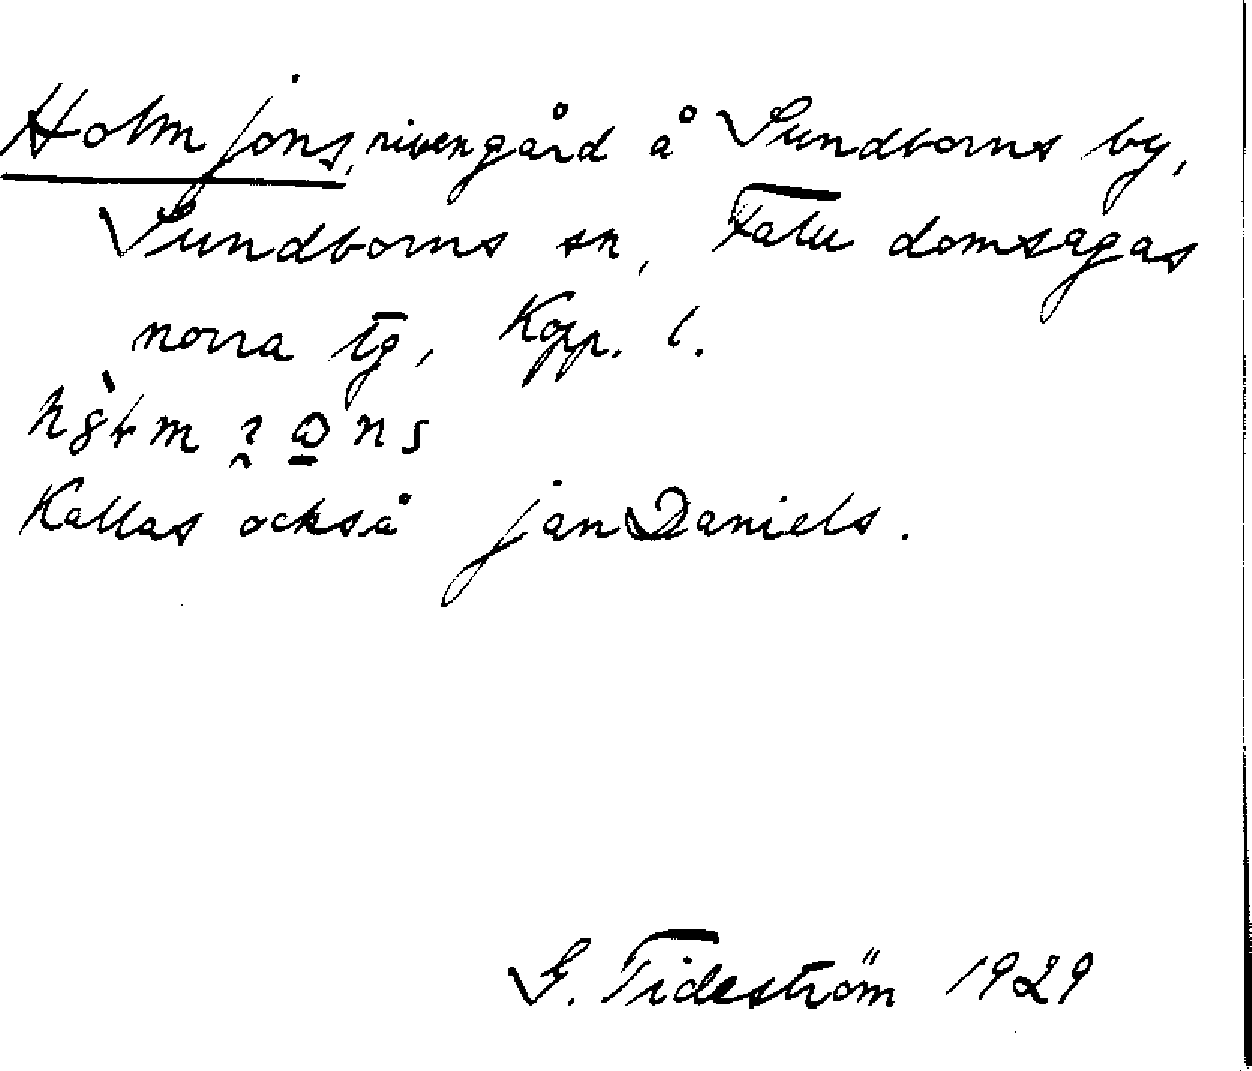 Holm jons, riven gård å Sundborns by,
Sundborns sn, Falu domsagas
norra tg, Kopp. l.
Kallas också jan Daniels.
G. Tideström 1929